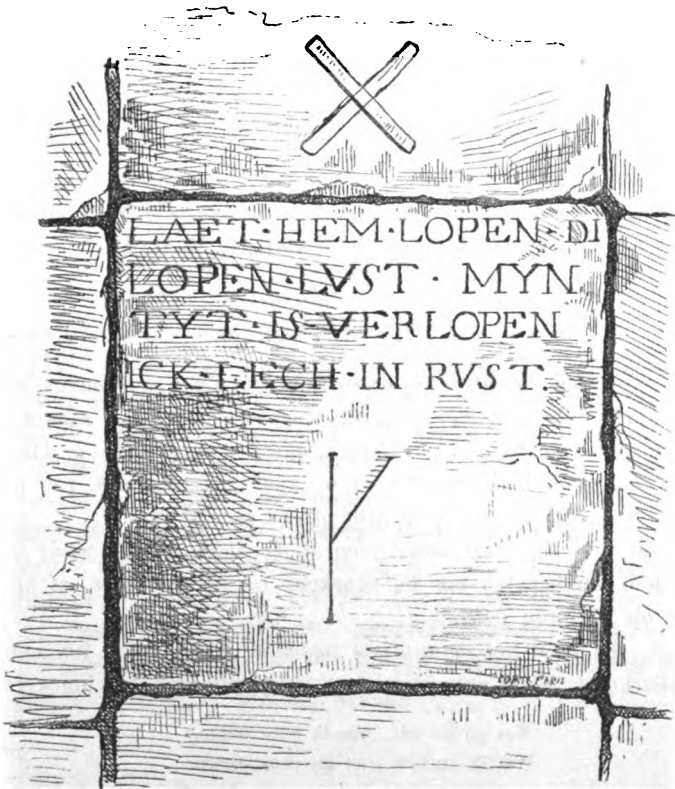 LAET·HEM·LOPEN·DI
LOPEN·LVST · MYN
TYT·IS·VERLOPEN
ICK·LECH·IN RVST.